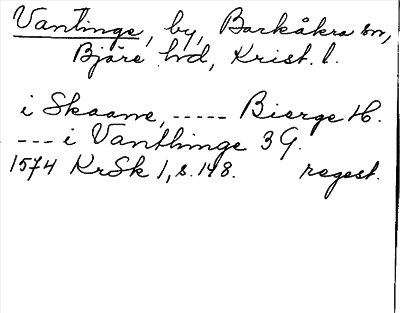 Vantinge, by, Barkåkra sn,
Bjäre hd, Krist. l.
i Skaane, ----- Bierge H.
--- i Vanthinge 3 G.
1574 KrSk 1, s. 148. regest.